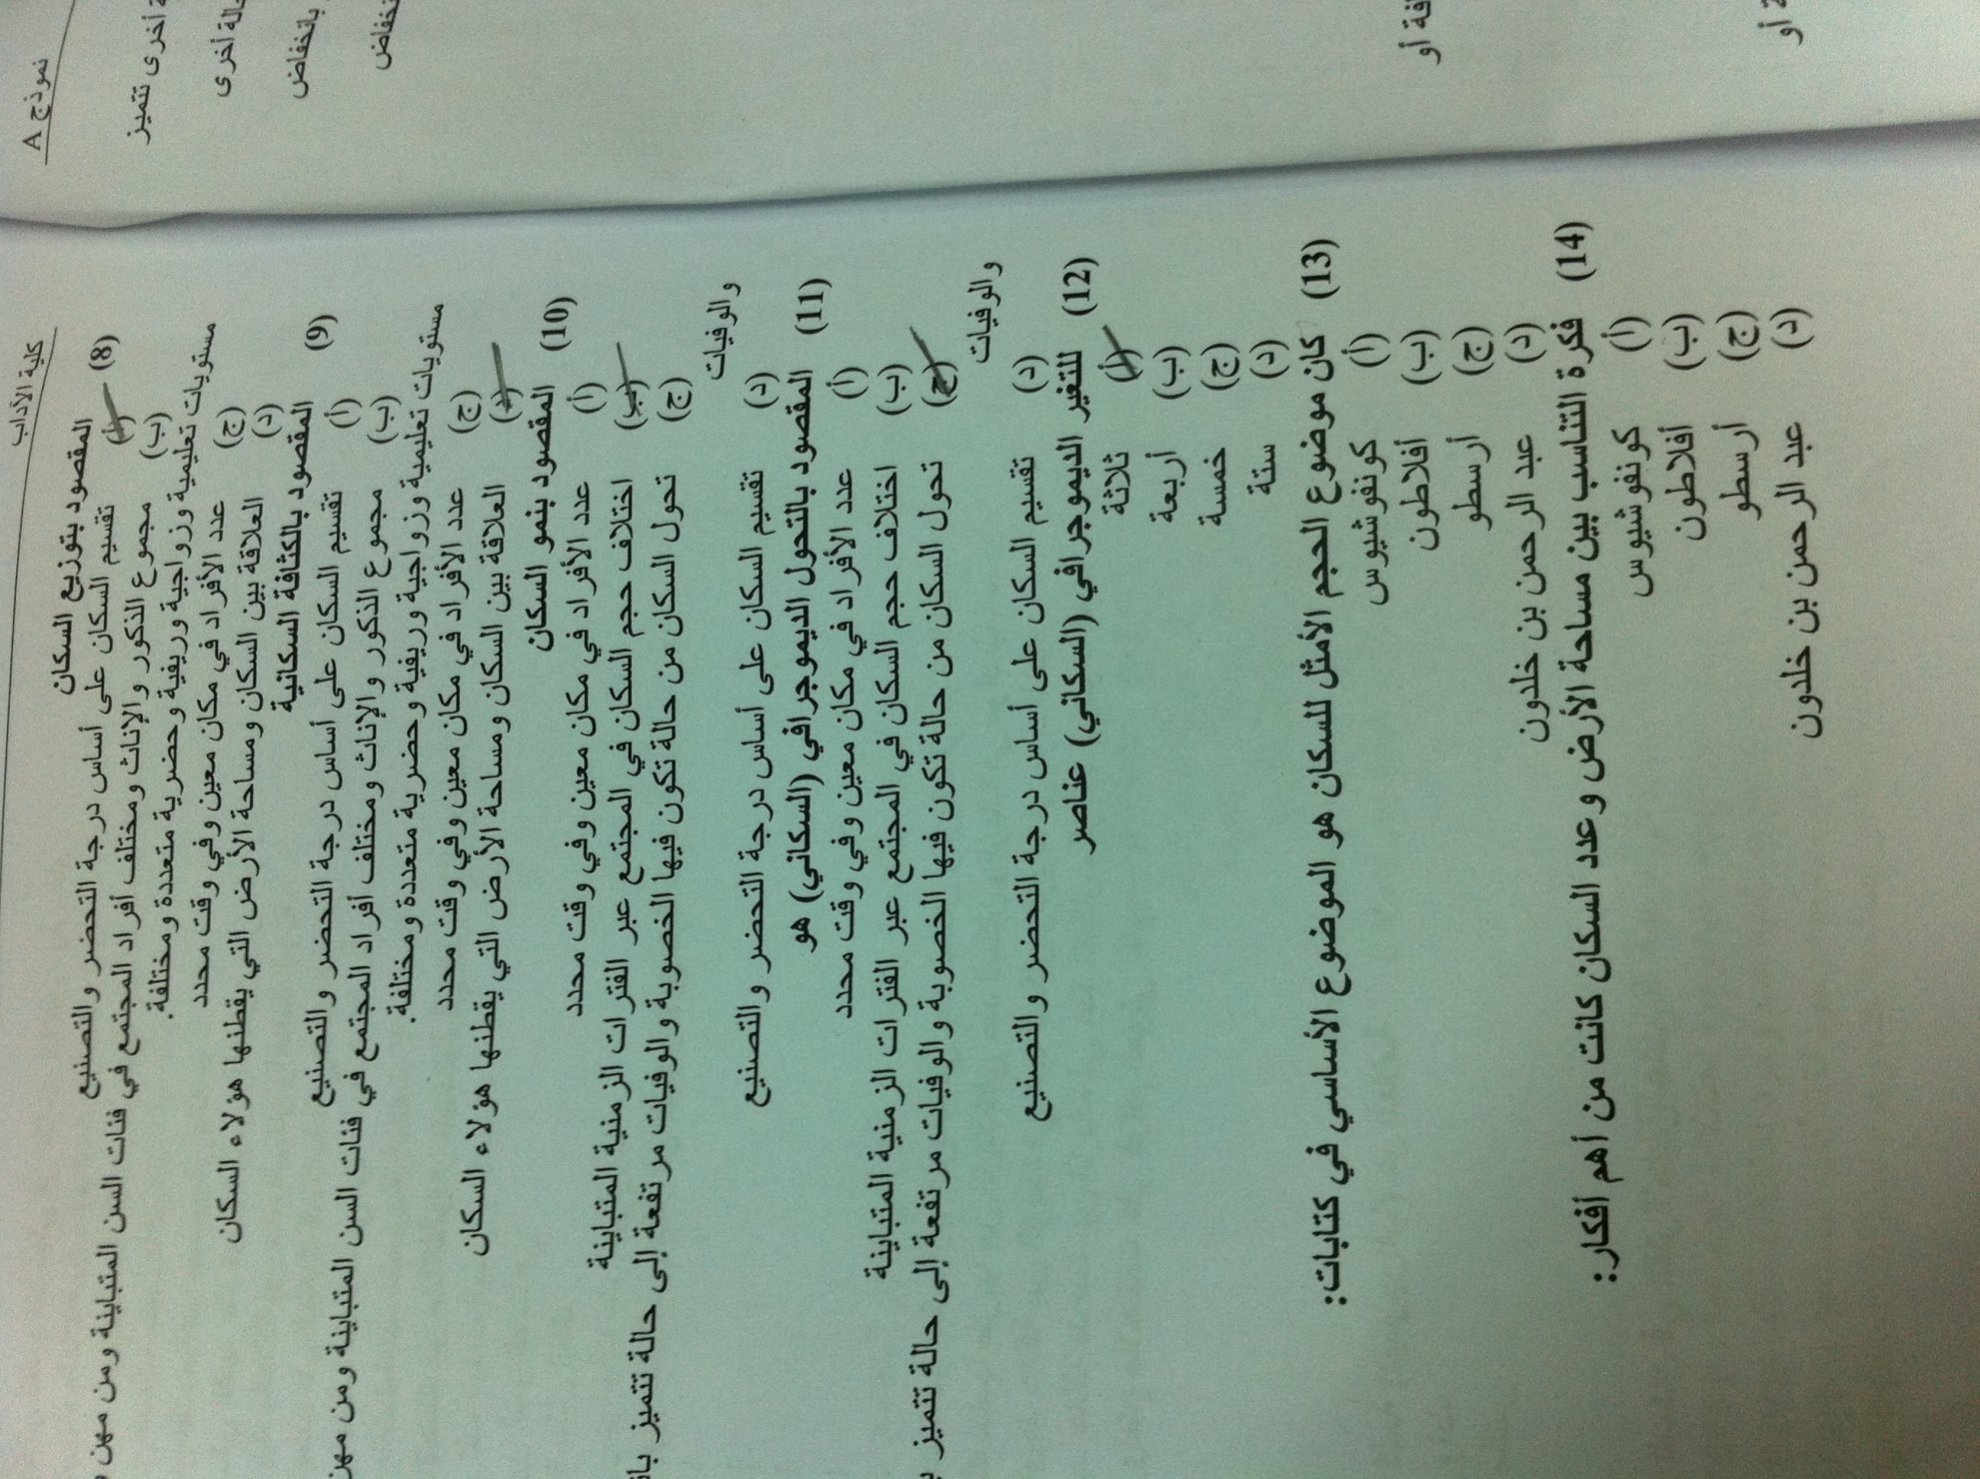 كلية الآداب
نموذج A
(8) المقصود بتوزيع السكان
(أ) تقسيم السكان على أساس درجة التحضر والتصنيع
(ب) مجموع الذكور والإناث ومختلف أفراد المجتمع في فئات السن المتباينة ومن مهن
مستويات تعليمية وزواجية وريفية وحضرية متعددة ومختلفة.
(ج) عدد الأفراد في مكان معين وفي وقت محدد
(د) العلاقة بين السكان ومساحة الأرض التي يقطنها هؤلاء السكان
(9) المقصود بالكثافة السكانية
(أ) تقسيم السكان على أساس درجة التحضر والتصنيع
(ب) مجموع الذكور والإناث ومختلف أفراد المجتمع في فئات السن المتباينة ومن مهن
مستويات تعليمية وزواجية وريفية وحضرية متعددة ومختلفة.
(ج) عدد الأفراد في مكان معين وفي وقت محدد
(د) العلاقة بين السكان ومساحة الأرض التي يقطنها هؤلاء السكان
(10) المقصود بنمو السكان
(أ) عدد الأفراد في مكان معين وفي وقت محدد
(ب) اختلاف حجم السكان في المجتمع عبر الفترات الزمنية المتباينة
(ج) تحول السكان من حالة تكون فيها الخصوبة والوفيات مرتفعة إلى حالة تتميز
والوفيات
(د) تقسيم السكان على أساس درجة التحضر والتصنيع
(11) المقصود بالتحول الديموجرافي (السكاني) هو
(أ) عدد الأفراد في مكان معين وفي وقت محدد
(ب) اختلاف حجم السكان في المجتمع عبر الفترات الزمنية المتباينة
(ج) تحول السكان من حالة تكون فيها الخصوبة والوفيات مرتفعة إلى حالة تتميز
والوفيات
(د) تقسيم السكان على أساس درجة التحضر والتصنيع
(12) للتغير الديموجرافي (السكاني) عناصر
(أ) ثلاثة
(ب) أربعة
(ج) خمسة
(د) ستة
(13) كان موضوع الحجم الأمثل للسكان هو الموضوع الأساسي في كتابات:
(أ) كونفوشيوس
(ب) أفلاطون
(ج) أرسطو
(د) عبد الرحمن بن خلدون
(14) فكرة التناسب بين مساحة الأرض وعدد السكان كانت من أهم أفكار:
(أ) كونفوشيوس
(ب) أفلاطون
(ج) أرسطو
(د) عبد الرحمن بن خلدون
أخرى تتميز
أخرى
بانخفاض
أو
أو